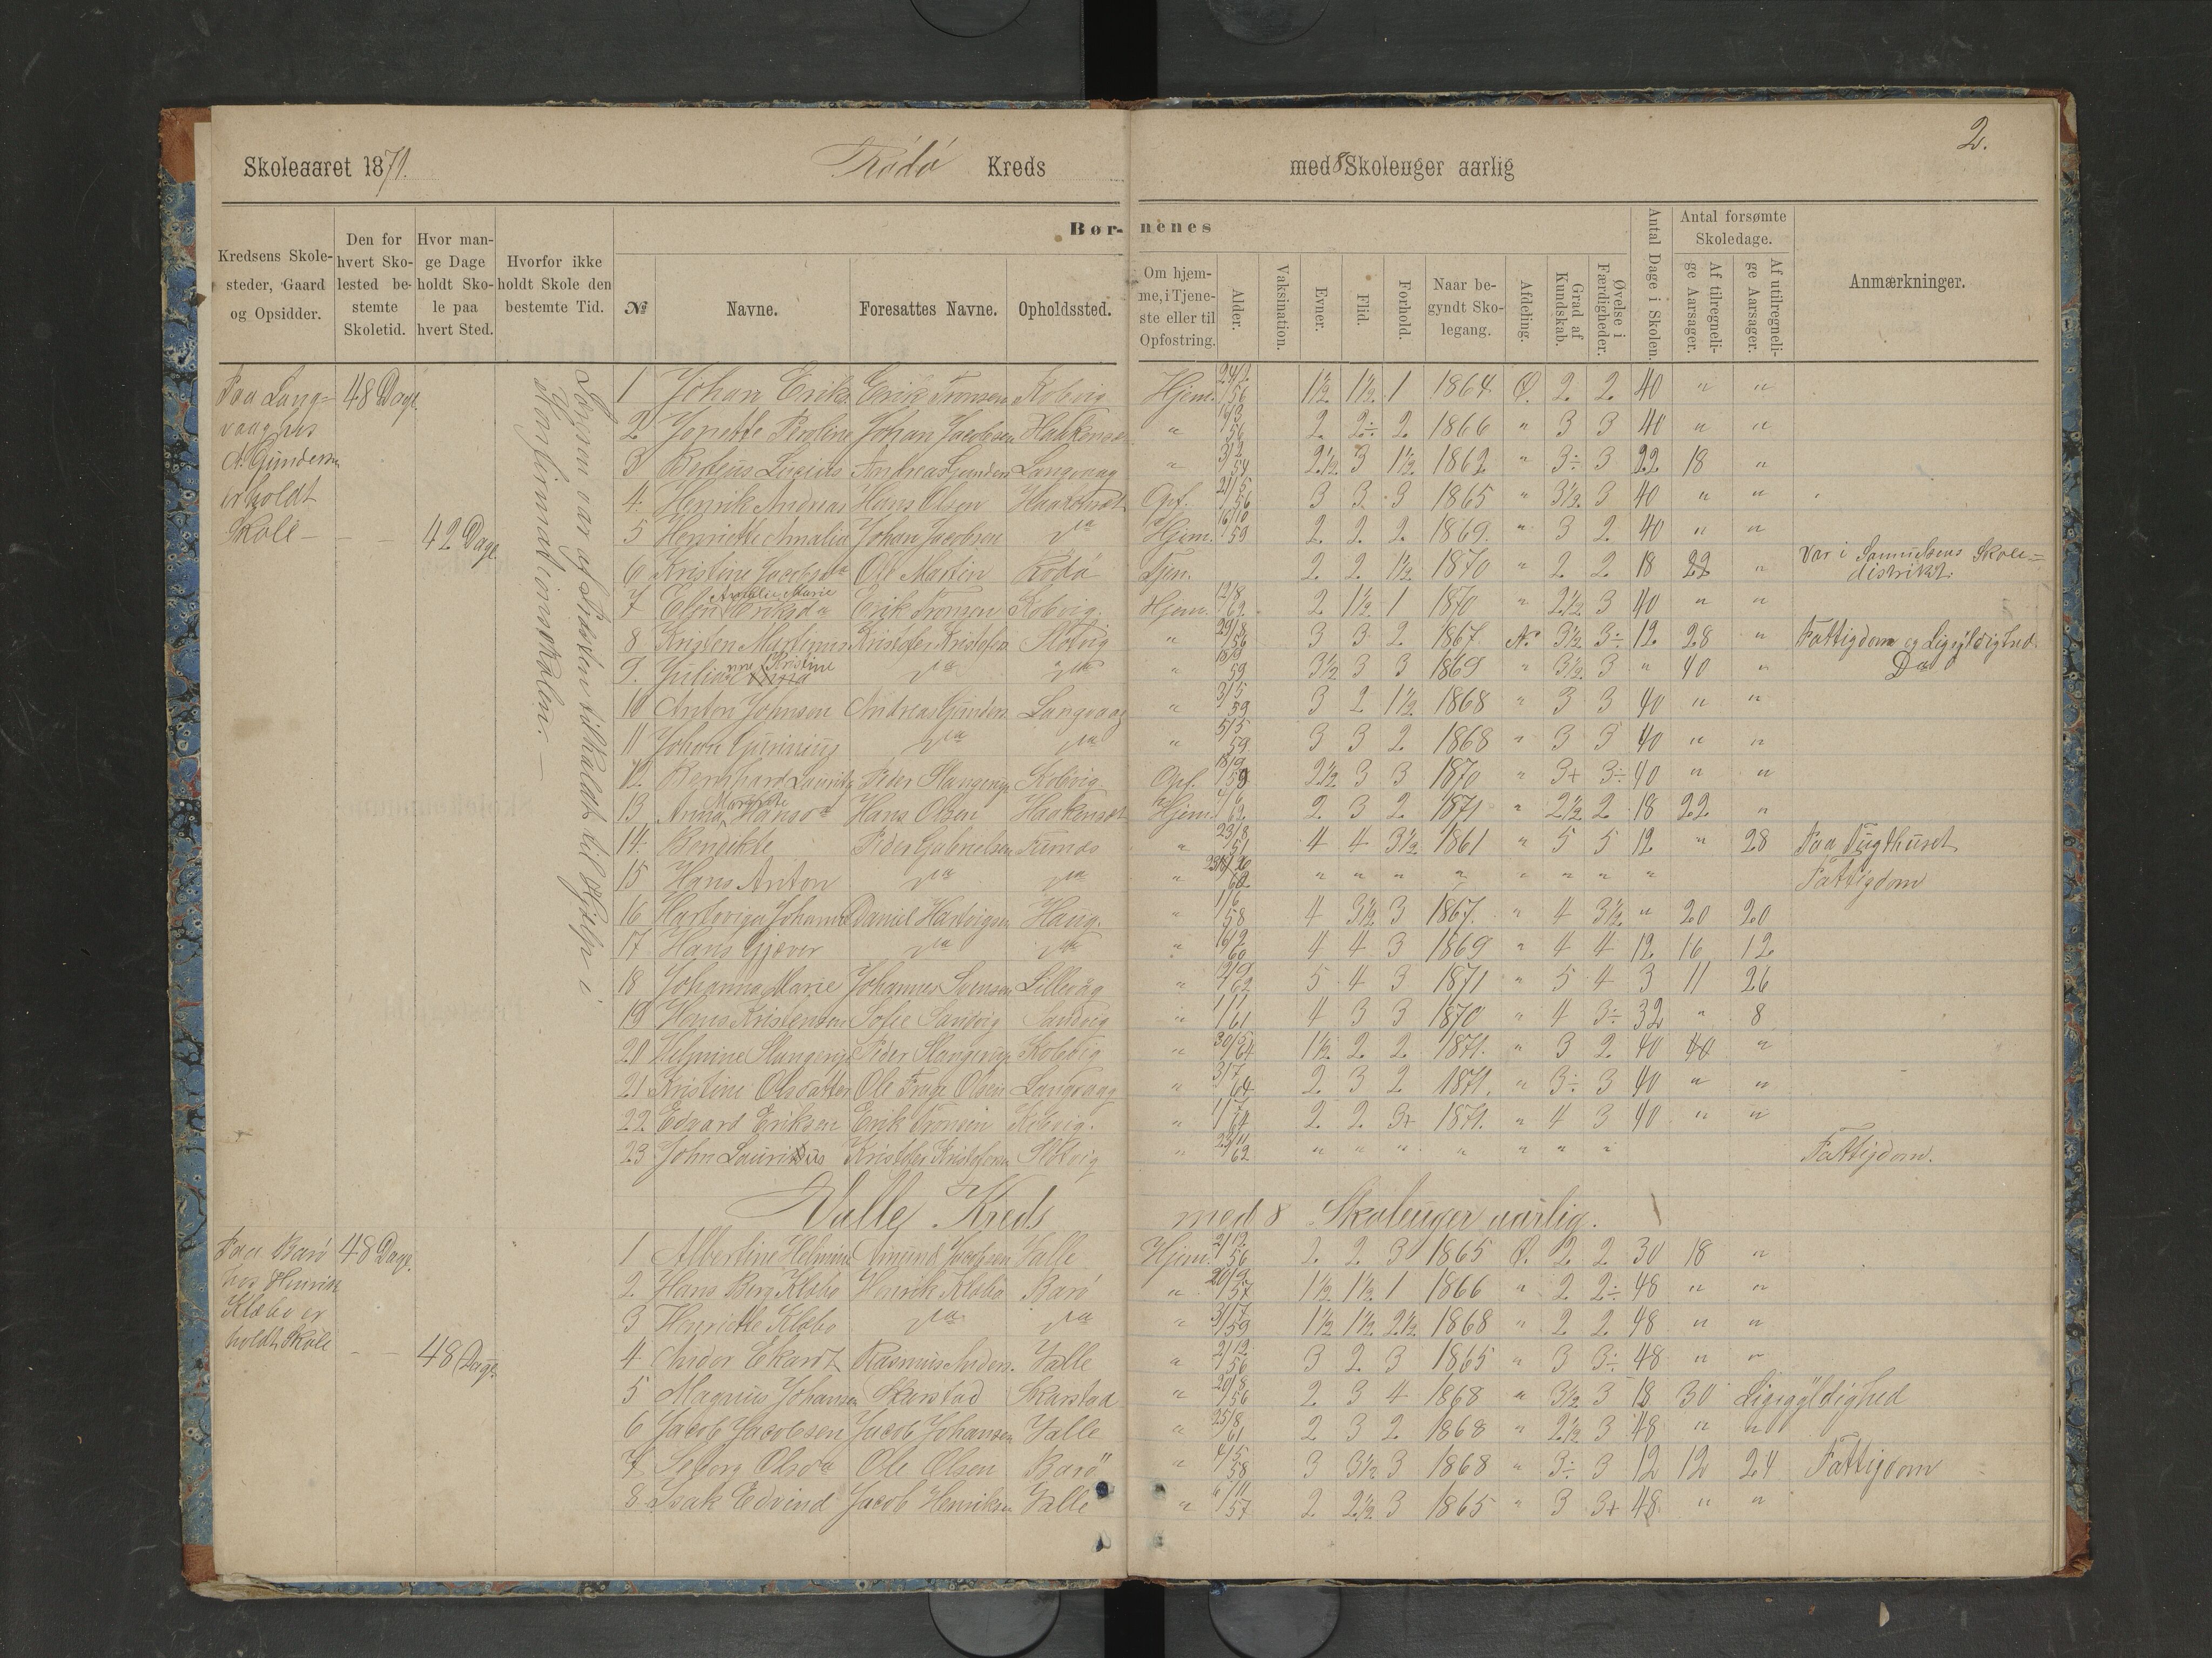 2.
Skoleaaret 1871. Rödö Kreds med 8 Skoleuger aarlig
Kredsens Skolesteder, Gaard og Opsidder.
Den for hvert Skolested bestemte Skoletid.
Hvor mange Dage holdt Skole paa hvert Sted.
Hvorfor ikke holdt Skole den bestemte Tid.
Børnenes
№ Navne. Foresattes Navne. Opholdssted.
Om hjemme, i Tjeneste eller til Opfostring.
Alder.
Vaksination.
Evner.
Flid.
Forhold.
Naar begyndt Skolegang.
Afdeling.
Grad af Kundskab.
Øvelse i Færdigheder.
Antal Dage i Skolen.
Antal forsømte Skoledage.
Af tilregnelige Aarsager.
Af utilregnelige Aarsager.
Anmærkninger.
Paa Langvaag hos A. Gundersen er holdt Skole - - - 48 Dage 42 Dage
Læreren var af Præsten tilkaldt til Hjelp i Konfirmationsskolen. —
1 Johan Eriks. Erik Tronsen Kobvig Hjem. 24/2 56 1½ 1½ 1 1864 Ø. 2 2 40 " "
2 Jonette Peroline Johan Jacobsen Haakensæt " 16/3 56 2 2÷ 2 1866 " 3 3 40 " "
3 Berteus Lucius Andreas Gunders Langvaag " 3/2 54 2½ 3 1½ 1862 " 3÷ 3 22 18 "
4. Henrik Andreas Hans Olsen Haakensæt Opf. 21/5 56 3 3 3 1865 " 3½ 3 40 " "
5 Henriette Amalia Johan Jacobsen da Hjem. 16/10 59 2 2 2 1869. " 3 2 40 " "
6 Kristine Jacobsda Ole Martin Rödö Tjen. 2 2 1½ 1870 " 2 2 18 22 " Var i Samuelsens Skoledistrikt.
7 Elen Amalie Marie Eriksda Erik Tronsen Kobvig. Hjem. 12/8 62 2 1½ 1 1870 " 2½ 3 40 " "
8 Kristen Martinus Kristofer Kristofers Slotvig " 29/8 56 3 3 2 1867. N. 3½ 3÷ 12 28 " Fattigdom og Ligegyldighed
9. Julianne Kristine da da " 18/9 59 3½ 3 3 1869 " 3½ 3 " 40 " Do
10 Anton Johnsen Andreas Gunders Langvaag " 3/5 59 3 2 1½ 1868 " 3 3 40 " "
11 Johan Gurinius da da " 5/5 59 3 3 2 1868 " 3 3 40 " "
12 Bernhard Lauritz Peder Slangerup Kobvig Opf. 18/9 59 2½ 3 3 1870 " 3+ 3÷ 40 " "
13 Anna Margrete Hansda Hans Olsen Haakensæt Hjem. 4/6 62 2 3 2 1871 " 2½ 2 18 22 "
14. Bendikte Peder Gabrielsen Tunæs " 23/8 51 4 4 3½ 1861 " 5 5 12 " 28 Paa Tugthuset
15 Hans Anton da da " 62 " " " " " " " " Fattigdom
16 Hartviga Johanna Daniel Hartvigsen Haug. " 1/6 58 4 3½ 3 1867. " 4 3½ " 20 20
17 Hans Gjæver da da " 16/2 60 4 4 3 1869 " 4 4 12 16 12
18 Johanna Marie Johannes Svensen Lillevåg " 12/9 62 5 4 3 1871 " 5 4 3 11 26
19 Hans Kristensen Sofie Sandvig Sandvig " 1/11 61 4 3 3 1870 " 4 3÷ 32 " 8
20 Helmine Slangerup Peder Slangerup Kobvig " 30/5 64 1½ 2 2 1871. " 3 2 40 40 "
21 Kristine Olsdatter Ole Olsen Langvaag " 3/7 64 2 3 2 1871. " 3÷ 3 40 " "
22 Edvard Eriksen Erik Tronsen Kobvig. " 1/7 64 2 2 3+ 1871. " 4 3 40 " "
23 John Lauritus Kristofer Kristofersen Slotvig " 23/11 62 " " " " " " " Fattigdom.
Valle Kreds med 8 Skoleuger aarlig.
Paa Barö hos Henrik Klæbo er holdt Skole - - 48 Dage. 48 Dage.
1 Albertine Helmine Amund Jacobsen Valle Hjem. 2/12 56 2 2 3 1865 Ø. 2 2 30 18 "
2 Hans Berg Klæbo Henrik Klæbo Barö " 20/2 57 1½ 1½ 1 1866 " 2 2÷ 48 " "
3 Henriette Klæbo da da " 31/7 59 1½ 1½ 2½ 1868 " 2 2 48 " "
4 Andor Ekardt Rasmus Anders. Valle " 2/12 56 3 2 3 1865 " 3 3÷ 48 " "
5 Magnus Johansen Skarstad Skarstad " 20/8 56 2 3 4 1868 " 3½ 3 18 30 Ligegyldighed
6 Jacob Jacobsen Jacob Johansen Valle " 25/8 61 2 3 2 1868 " 2½ 3 48 " "
7 Seborg Olsda Ole Olsen Barö " 4/5 58 3 3½ 3 1868 " 3÷ 3 12 12 24 Fattigdom
8 Isak Edvind Jacob Henriksen Valle " 6/11 57 2 2½ 3 1865 " 3 3+ 48 " "